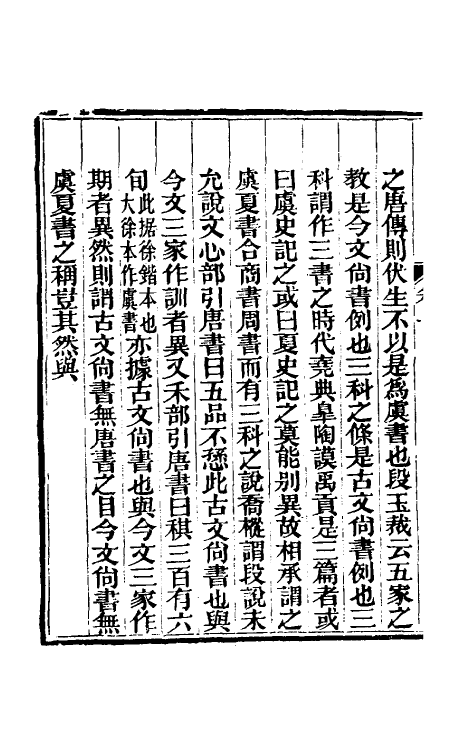 之唐傳則伏生不以是爲虞書也段玉裁云五家之
教是今文尙書例也三科之條是古文尙書例也三
科謂作三書之時代堯典皐陶謨禹貢是三篇者或
曰虞史記之或曰夏史記之莫能別異故相承謂之
虞夏書合商書周書而有三科之說喬樅謂段說未
允說文心部引唐書曰五品不愻此古文尙書也與
今文三家作訓者異又禾部引唐書曰稘三百有六
旬此据徐鍇本也大徐本作虞書亦據古文尙書也與今文三家作
期者異然則謂古文尙書無唐書之目今文尙書無
虞夏書之稱豈其然與